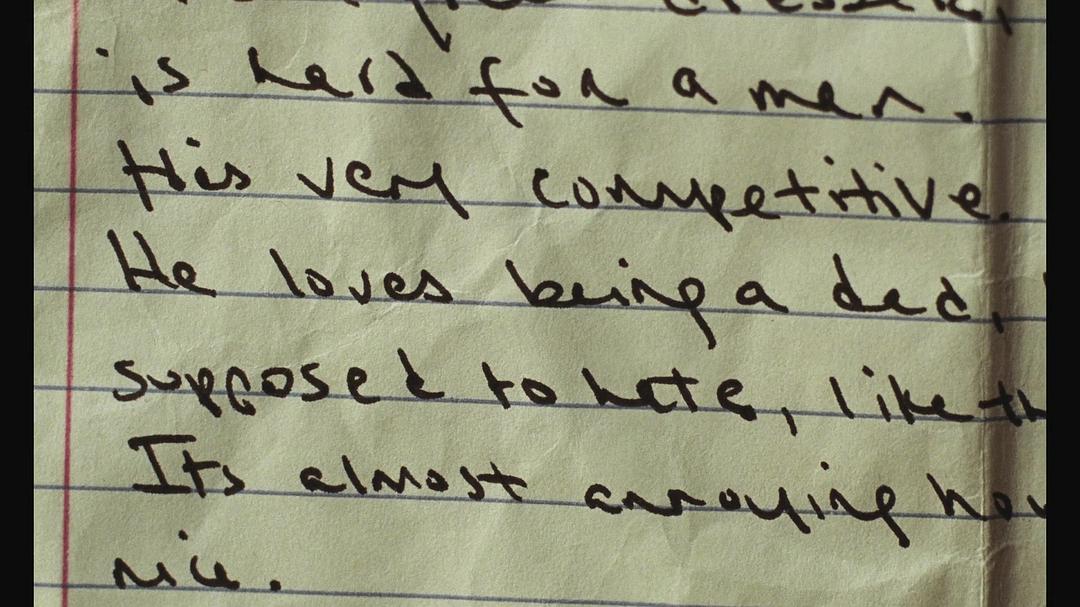 is hard for a man.
His very competitive.
He loves being a dad,
supposed to hate, like
Its almost annoying
nice.